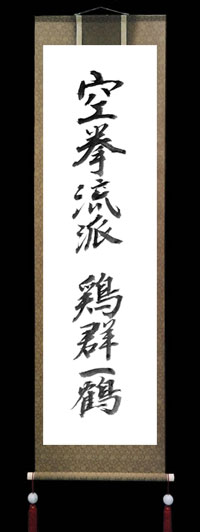 空拳流派 鶏群一鶴